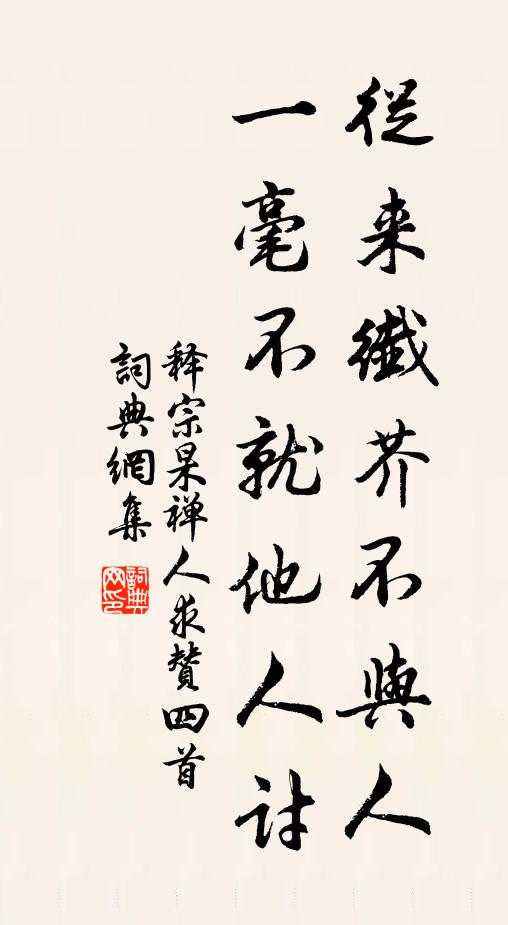 從来纖芥不與人
一毫不就他人討
释宗杲禅人求贊四首
詞典網集
詞典網印